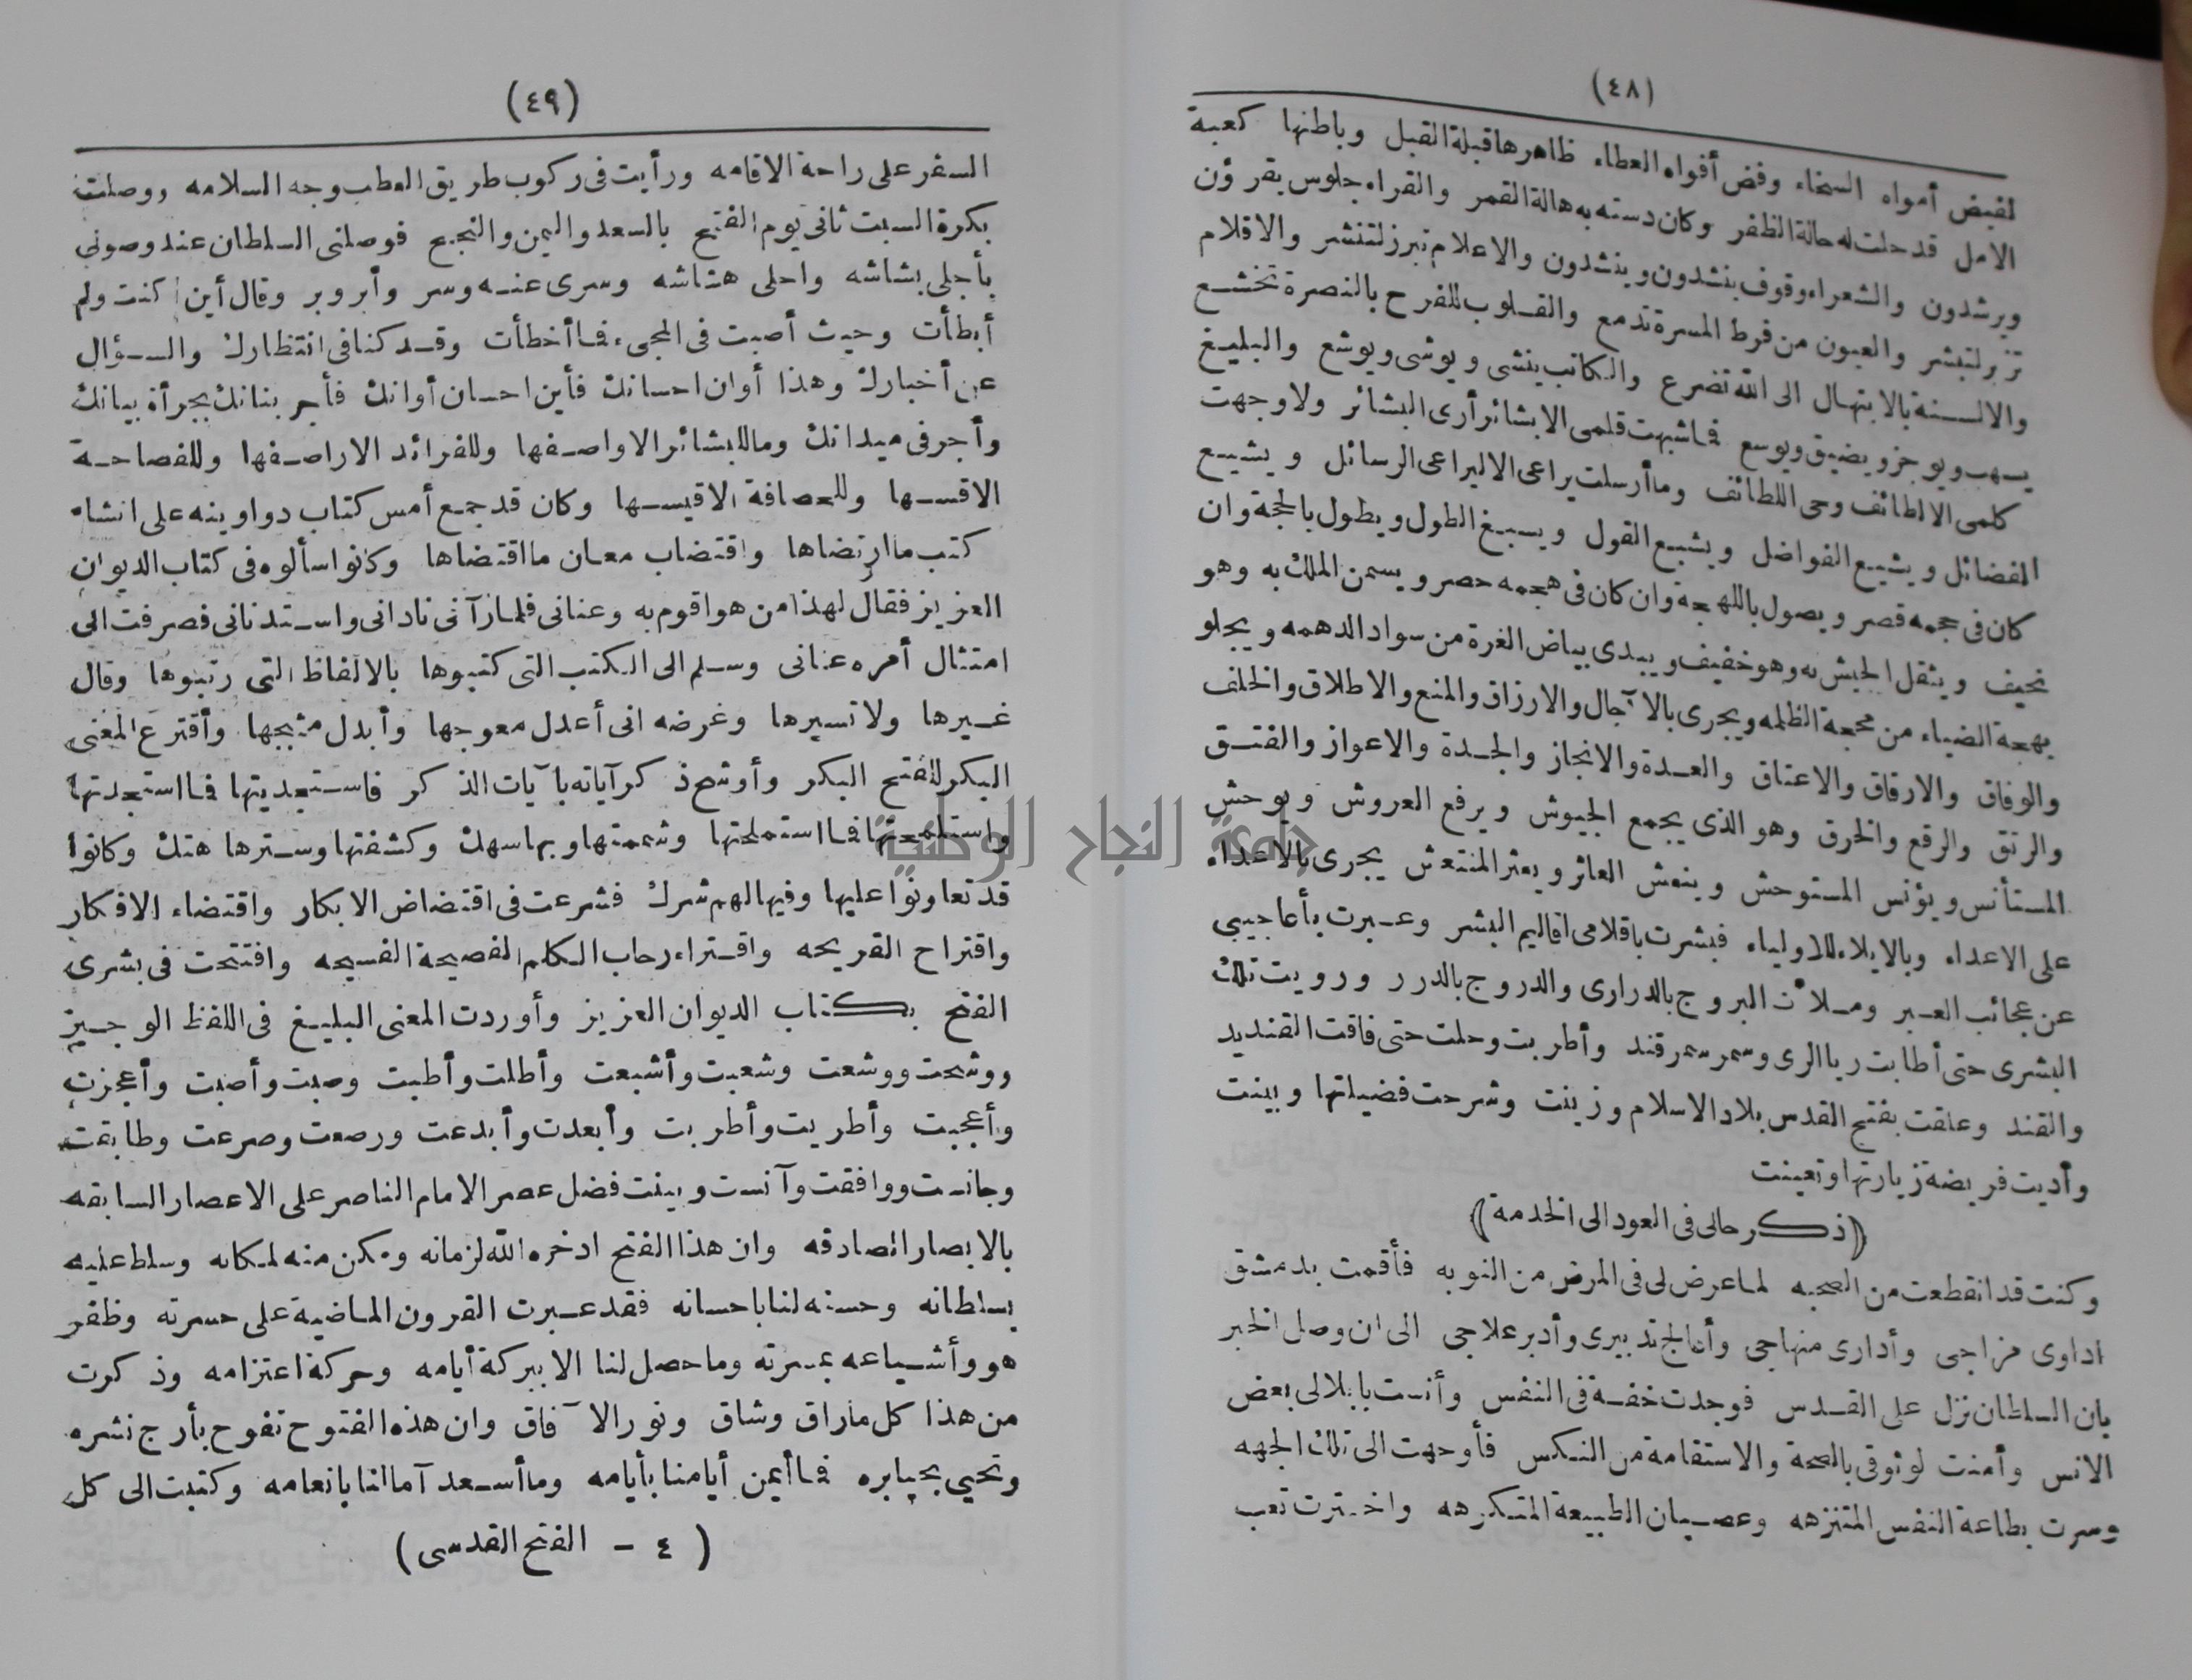 (٤٨)
لفيض أمواه السخاء وفض أفواه العطاء ظاهرها قبلة القبل وباطنها كعبة
الامل قد حلت له حالة الظفر وكان دسته به هالة القمر والقراء جلوس يقرؤن
ويرشدون والشعراء وقوف ينشدون وينشدون والاعلام تبرز لتنشر والاقلام
تزبر لتبشر والعيون من فرط المسرة تدمع والقلوب للفرح بالنصرة تخشع
والالسنة بالابتهال الى الله تضرع والكاتب ينشى ويوشى ويوشع والبليغ
يسهب ويوجز ويضيق ويوسع فما شبهت قلمى الا بشائر أرى البشائر ولا وجهت
كلمى الا لطائف وحى اللطائف وما أرسلت يراعى الا ليراعى الرسائل ويشيع
الفضائل ويشيع الفواضل ويشبع القول ويسبغ الطول ويطول بالحجة وان
كان فى حجمه قصر ويصول باللهجة وان كان فى هجمه حصر ويسمن الملك به وهو
نحيف ويثقل الجيش به وهو خفيف ويبدى بياض الغرة من سواد الدهمه ويجلو
بهجة الضياء من محجة الظلمه ويجرى بالآجال والارزاق والمنع والاطلاق والخلف
والوفاق والارقاق والاعتاق والعدة والانجاز والجدة والاعواز والفتق
والرتق والرقع والخرق وهو الذى يجمع الجيوش ويرفع العروش ويوحش
المستأنس ويؤنس المستوحش وينعش العاثر ويعثر المنتعش يجرى بالاعداء
على الاعداء وبالايلاء للاولياء فبشرت باقلامى اقاليم البشر وعبرت بأعاجيبى
عن عجائب العبر وملأت البروج بالدرارى والدروج بالدرر ورويت تلك
البشرى حتى أطابت ريا الرى وسمر سمرقند وأطربت وحلت حتى فاقت القنديد
والقند وعلقت بفتح القدس بلاد الاسلام وزينت وشرحت فضيلتها وبينت
وأديت فريضة زيارتها وتعينت
(ذكر حالى فى العود الى الخدمة)
وكنت قد انقطعت من الصحبه لما عرض لى فى المرض من النوبه فأقمت بدمشق
اداوى مزاجى وأدارى منهاجى وأعالج تدبيرى وأدبر علاجى الى ان وصل الخبر
بان السلطان نزل على القدس فوجدت خفة فى النفس وأنست بابلالى بعض
الانس وأمنت لوثوقى بالصحة والاستقامة من النكس فأوجهت الى تلك الجهه
وسرت بطاعة النفس المتنزهه وعصيان الطبيعة المتكرهه واخترت تعب
(٤٩)
السفر على راحة الاقامه ورأيت فى ركوب طريق العطب وجه السلامه ووصلت
بكرة السبت ثانى يوم الفتح بالسعد واليمن والنجح فوصلنى السلطان عند وصولى
بأجلى بشاشه واحلى هشاشه وسرى عنه وسر وأبر وبر وقال أين كنت ولم
أبطأت وحيث أصبت فى المجىء فما أخطأت وقد كنا فى انتظارك والسؤال
عن أخبارك وهذا أوان احسانك فأين احسان أوانك فأجر بنانك بجرأة بيانك
وأجر فى ميدانك وما للبشائر الا واصفها وللفرائد الا راصفها وللفصاحة
الا قسها وللحصافة الا قيسها وكان قد جمع أمس كتاب دواوينه على انشاء
كتب ما ارتضاها واقتضاب معان ما اقتضاها وكانوا سألوه فى كتاب الديوان
العزيز فقال لهذا من هو اقوم به وعنانى فلما رآنى نادانى واستدنانى فصرفت الى
امتثال أمره عنانى وسلم الى الكتب التى كتبوها بالالفاظ التى رتبوها وقال
غيرها ولا تسيرها وغرضه انى أعدل معوجها وأبدل مثبجها وأقترع المعنى
البكر للفتح البكر وأوشح ذكر آياته بآيات الذكر فاستجديتها فما استجدتها
واستلمحتها فما استملحتها وشممتها وبها سهك وكشفتها وسترها هتك وكانوا
قد تعاونوا عليها وفيها لهم شرك فشرعت فى اقتضاض الابكار واقتضاء الافكار
واقتراح القريحه واقتراء رحاب الكلم الفصيحة الفسيحه وافتتحت فى بشرى
الفتح بكتاب الديوان العزيز وأوردت المعنى البليغ فى اللفظ الوجيز
ووشحت ووشعت وشعبت وأشبعت وأطلت وأطبت وصبت وأصبت وأعجزت
وأعجبت وأطريت وأطربت وأبعدت وأبدعت ورصعت وصرعت وطابقت
وجانست ووافقت وآنست وبينت فضل عصر الامام الناصر على الاعصار السابقه
بالابصار الصادقه وان هذا الفتح ادخره الله لزمانه ومكن منه لمكانه وسلط عليه
بسلطانه وحسنه لنا باحسانه فقد عبرت القرون الماضية على حسرته وظفر
هو وأشياعه بمسرته وما حصل لنا الا ببركة أيامه وحركة اعتزامه وذكرت
من هذا كل ما راق وشاق ونور الآفاق وان هذه الفتوح تفوح بأرج نشره
وتحيى بحيا بره فما أيمن أيامنا بأيامه وما أسعد آمالنا بانعامه وكتبت الى كل
(٤ - الفتح القدسى)
جامعة النجاح الوطنية